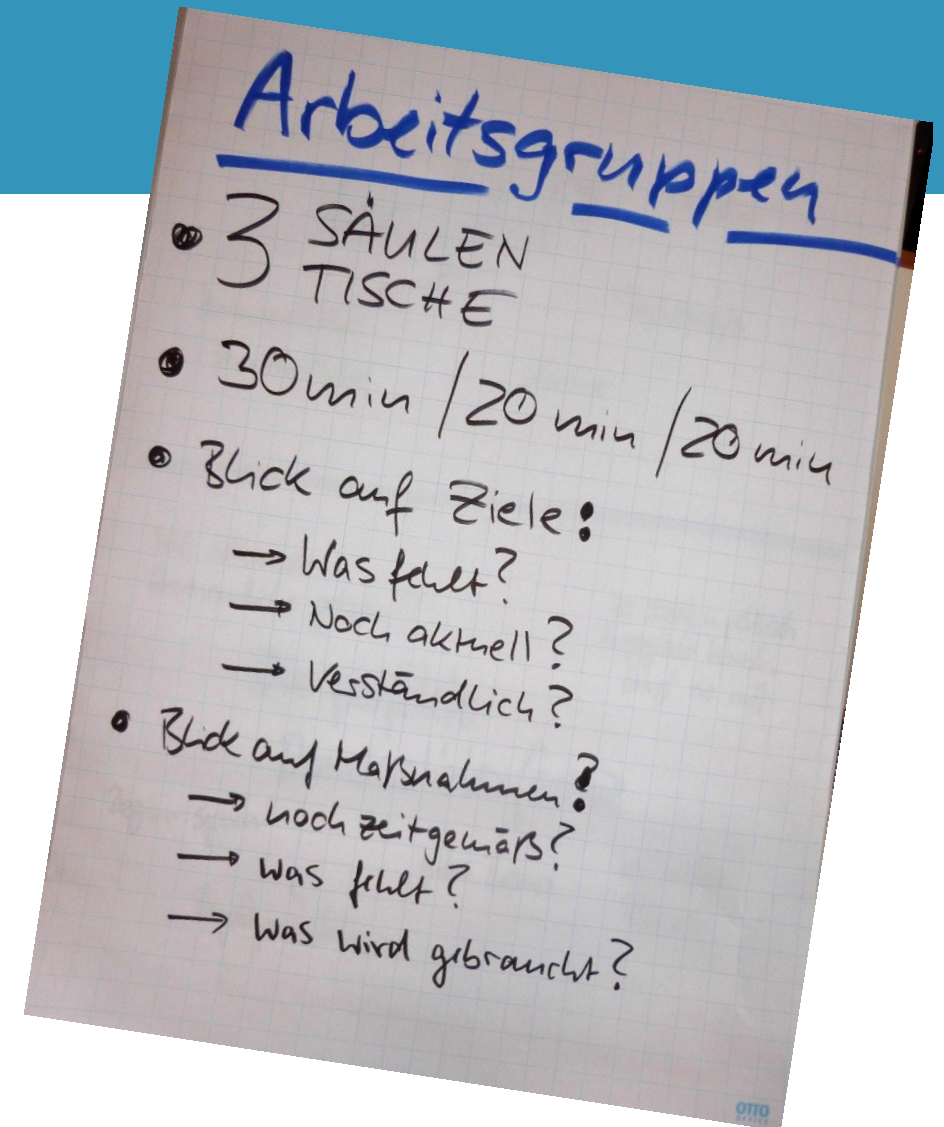 Arbeitsgruppen
• 3 SÄULEN
TISCHE
• 30 min / 20 min / 20 min
• Blick auf Ziele:
→ Was fehlt?
→ Noch aktuell?
→ Verständlich?
• Blick auf Maßnahmen:
→ noch zeitgemäß?
→ was fehlt?
→ was wird gebraucht?
OTTO
OFFICE